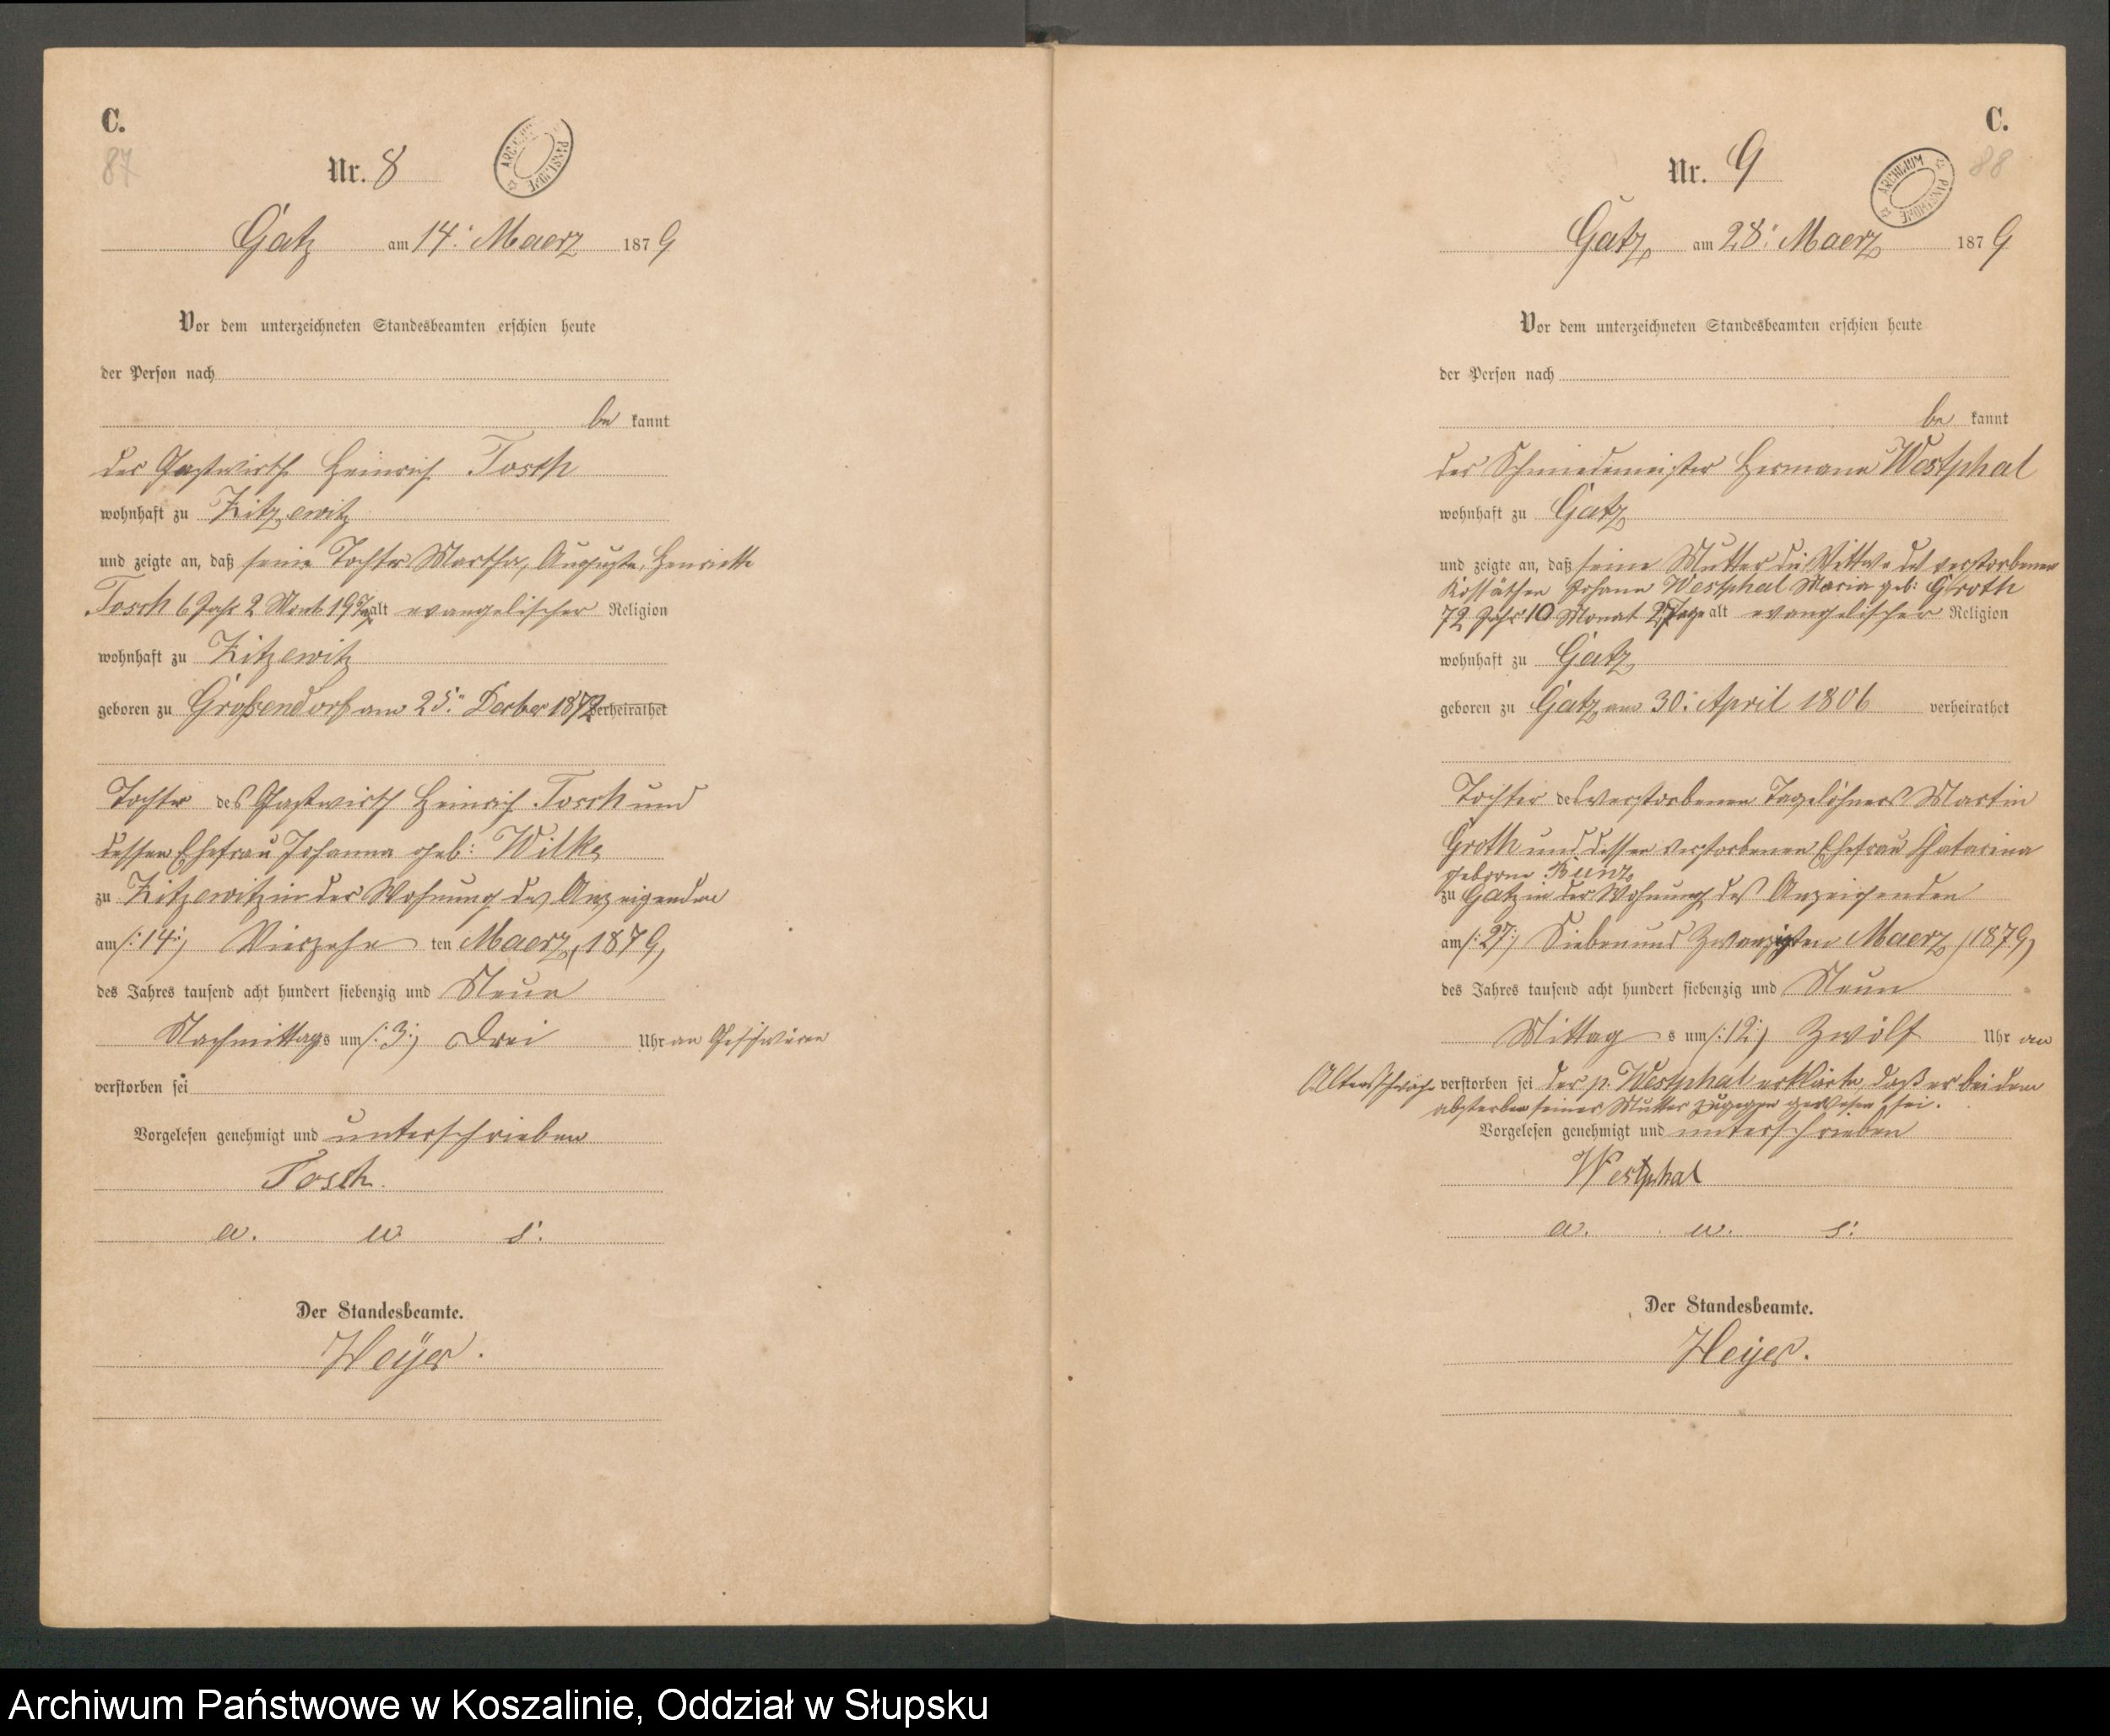 C.
87
Nr. 8
ARCHIWUM PAŃSTWOWE
Gatz am 14. Maerz 1879
Vor dem unterzeichneten Standesbeamten erschien heute
der Person nach
be kannt
der Gastwirth Heinrich Tosch
wohnhaft zu Zitzewitz
und zeigte an, daß seine Tochter Martha, Auguste, Henriette
Tosch 6 Jahr 2 Monat 19 Tg alt evangelischer Religion
wohnhaft zu Zitzewitz
geboren zu Großendorf am 25. Decber 1872 verheirathet
Tochter des Gastwirth Heinrich Tosch und
dessen Ehefrau Johanna geb: Wilke
zu Zitzewitz in der Wohnung des Anzeigenden
am /:14:/ Vierzehn ten Maerz, 1879,
des Jahres tausend acht hundert siebenzig und Neun
Nachmittags um /:3:/ Drei Uhr an Geschwüren
verstorben sei
Vorgelesen genehmigt und unterschrieben
Tosch.
a. u. s.
Der Standesbeamte.
Heÿer.
C.
88
Nr. 9
ARCHIWUM PAŃSTWOWE
Gatz am 28. Maerz 1879
Vor dem unterzeichneten Standesbeamten erschien heute
der Person nach
be kannt
der Schmiedemeister Hermann Westphal
wohnhaft zu Gatz
und zeigte an, daß seine Mutter die Wittwe des verstorbenen
Kossäthen Johann Westphal Maria geb: Groth
72 Jahr 10 Monat 27 Tage alt evangelischer Religion
wohnhaft zu Gatz
geboren zu Gatz am 30. April 1806 verheirathet
Tochter des verstorbenen Tagelöhners Martin
Groth und dessen verstorbenen Ehefrau Chatarina
geborne Bunz
zu Gatz in der Wohnung des Anzeigenden
am /:27:/ Siebenund Zwanzigsten Maerz /1879/
des Jahres tausend acht hundert siebenzig und Neun
Mittag s um /:12:/ Zwölf Uhr an
Altersschwäche verstorben sei der p. Westphal erklärte, daß er bei dem
absterben seiner Mutter zugegen gewesen sei.
Vorgelesen genehmigt und unterschrieben
Westphal
a. u. s.
Der Standesbeamte.
Heÿer.
Archiwum Państwowe w Koszalinie, Oddział w Słupsku